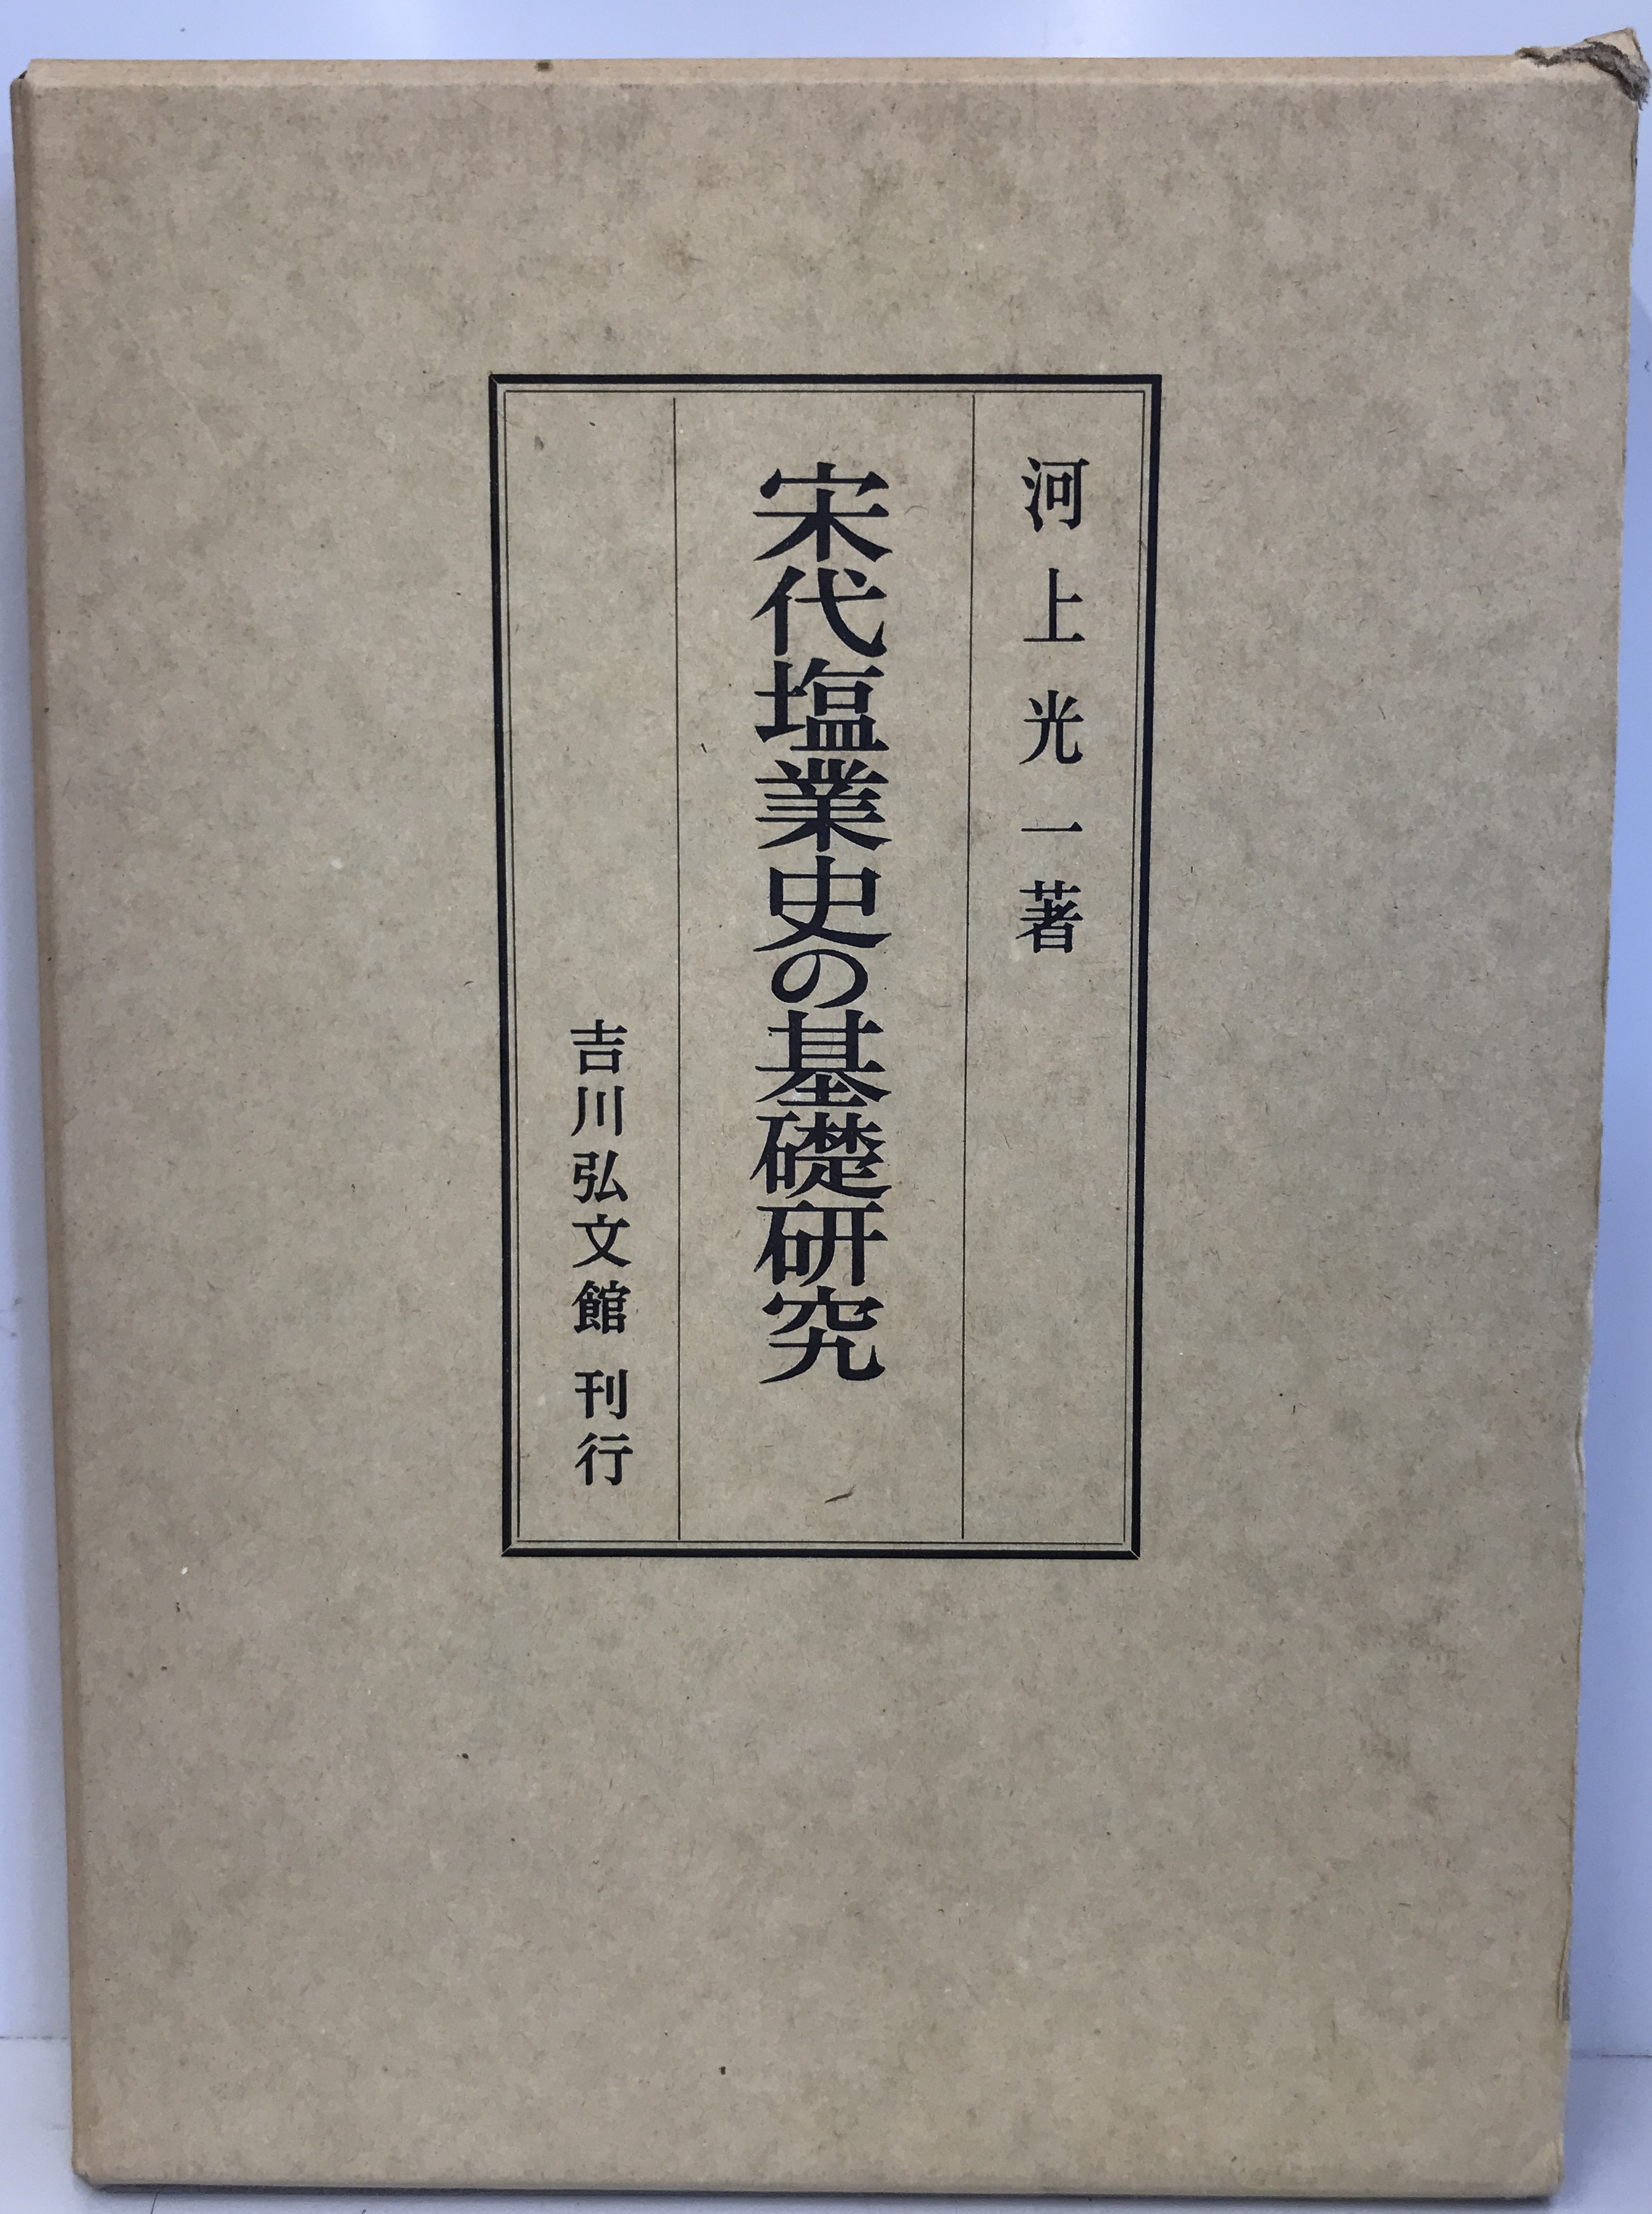 河上光一著
宋代塩業史の基礎研究
吉川弘文館 刊行